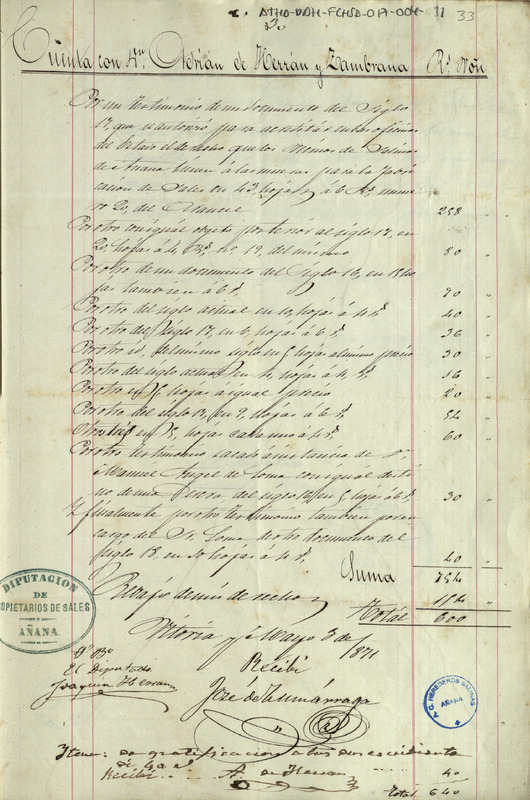 ATHA-DAH-FCHSD-017-004-031 33
Cuenta con Dn. Adrián de Herrán y Zambrana Rs. Von
Por un testimonio de un documento del siglo
17, que autorizó para acreditar en las oficinas
del Estado el derecho que los dueños de Salinas
de Añana tienen á las mueras para la fabri
cacion de Sales en 43 hojas á 6 Rs. nume
ro 20, del Arancel 258
Por otro con igual objeto por tenor al siglo 18, en
20, hojas á 4, Rs. no. 19, del mismo 80
Por otro de un documento del siglo 16, en 15 ho
jas tambien á 6 rs. 90
Por otro del siglo actual en 10, hojas á 4 rs. 40
Por otro del siglo 17, en 6, hojas á 6 rs. 36
Por otro id. del mismo siglo en 5 hojas al mismo precio 30
Por otro del siglo actual en 4, hojas á 4, rs. 16
Por otro en 5, hojas á igual precio 20
Por otro del siglo 17, en 9, hojas á 6 rs. 54
Otros tres en 5, hojas cada uno á 4 rs. 60
Por otro testimonio sacado á instancia de Dn.
Manuel Angel de Loma con igual desti
no de una del siglo en 5 hojas á 6 rs. 30
Y finalmente por otro testimonio tambien por en
cargo del Sr. Loma, de otro documento del
siglo 18, en 10 hojas á 4 rs. 40
Suma 754
Rebajo de mis derechos 154
Total 600
Vitoria y Mayo 3 de 1871
Recibí
José de Zumárraga
Vo. Bo.
El Diputado
Joaquin Herran
DIPUTACION DE PROPIETARIOS DE SALES AÑANA
HEREDEROS SALINAS AÑANA
Item: de gratificacion a los dos escribientes
40
Recibí A. de Herran
Total 640